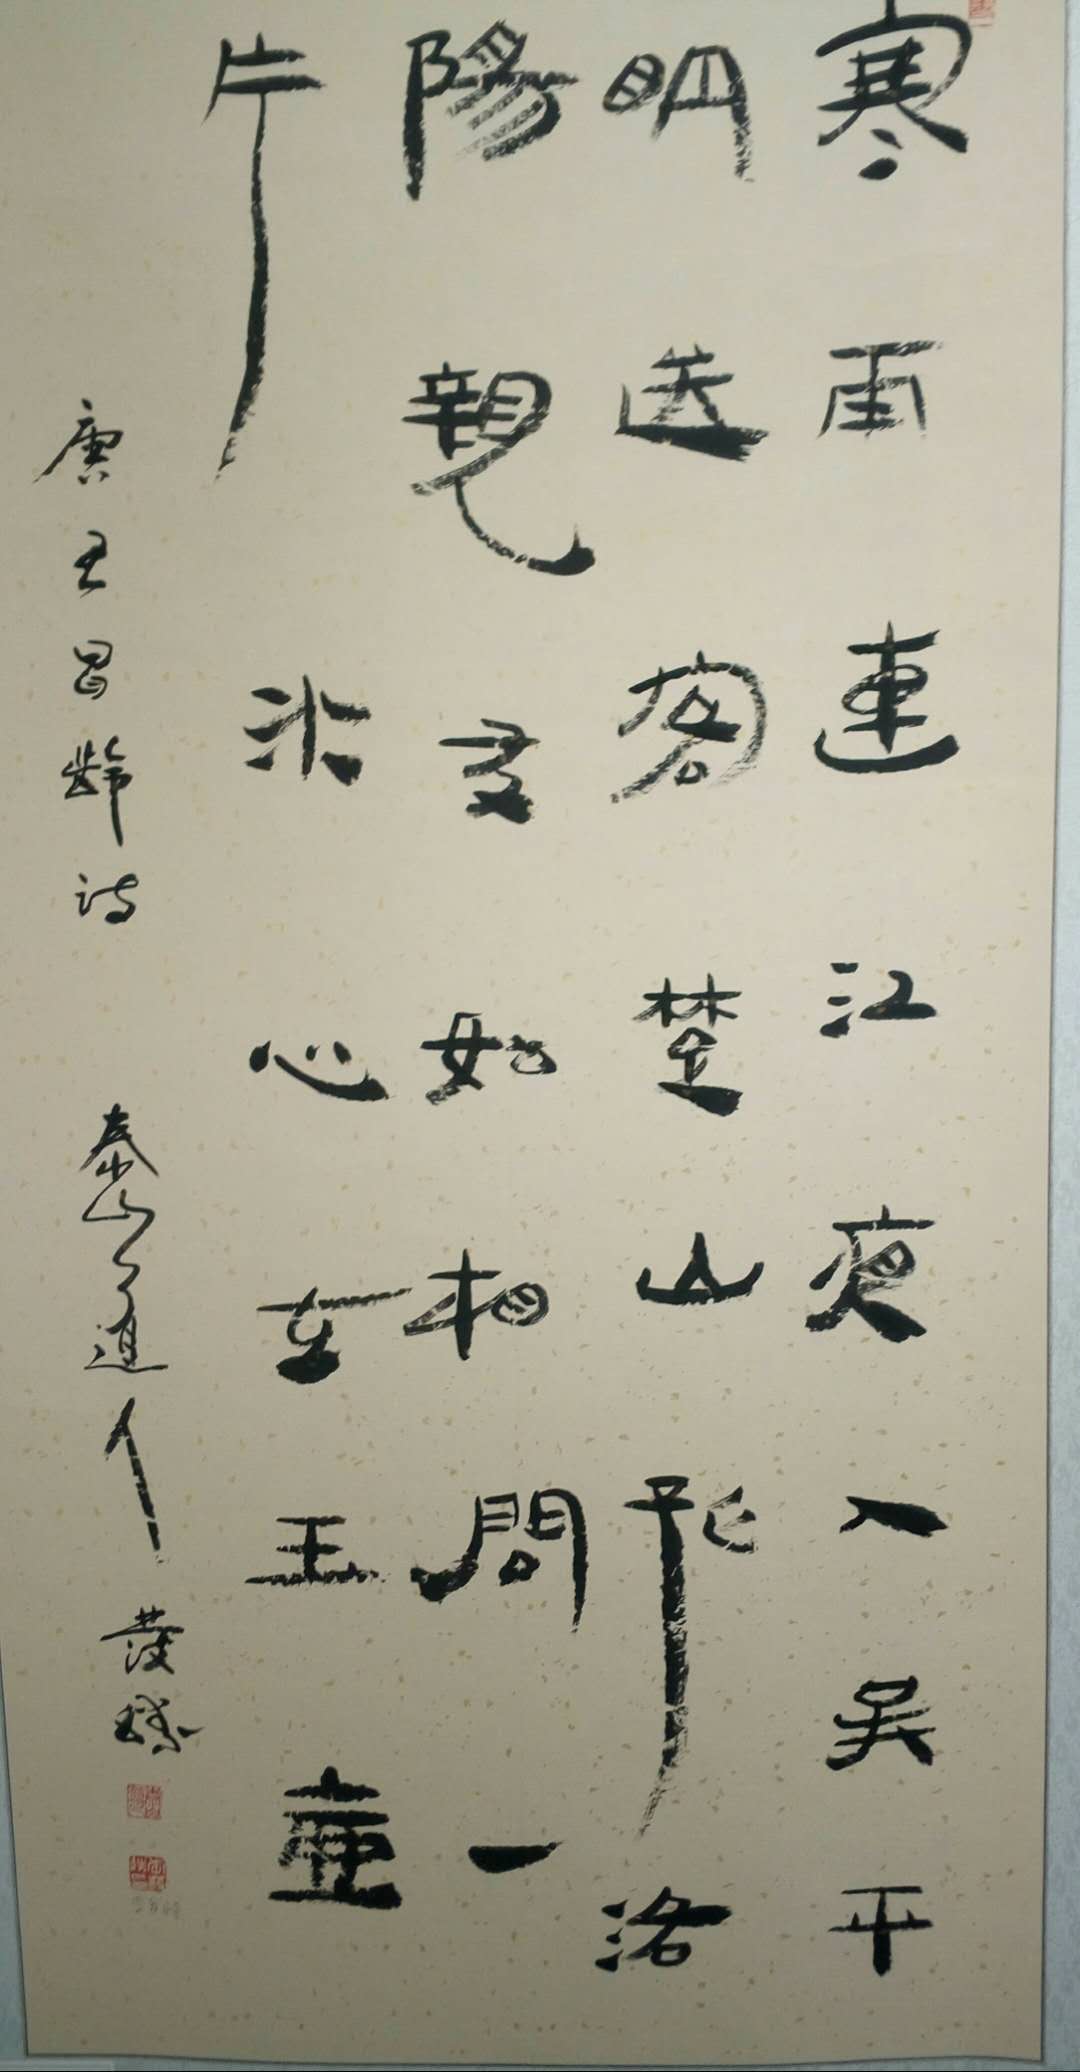 寒雨連江夜入吳平
明送客楚山孤洛
陽親友如相問一
片冰心在玉壺
唐王昌齡詩 泰山道人